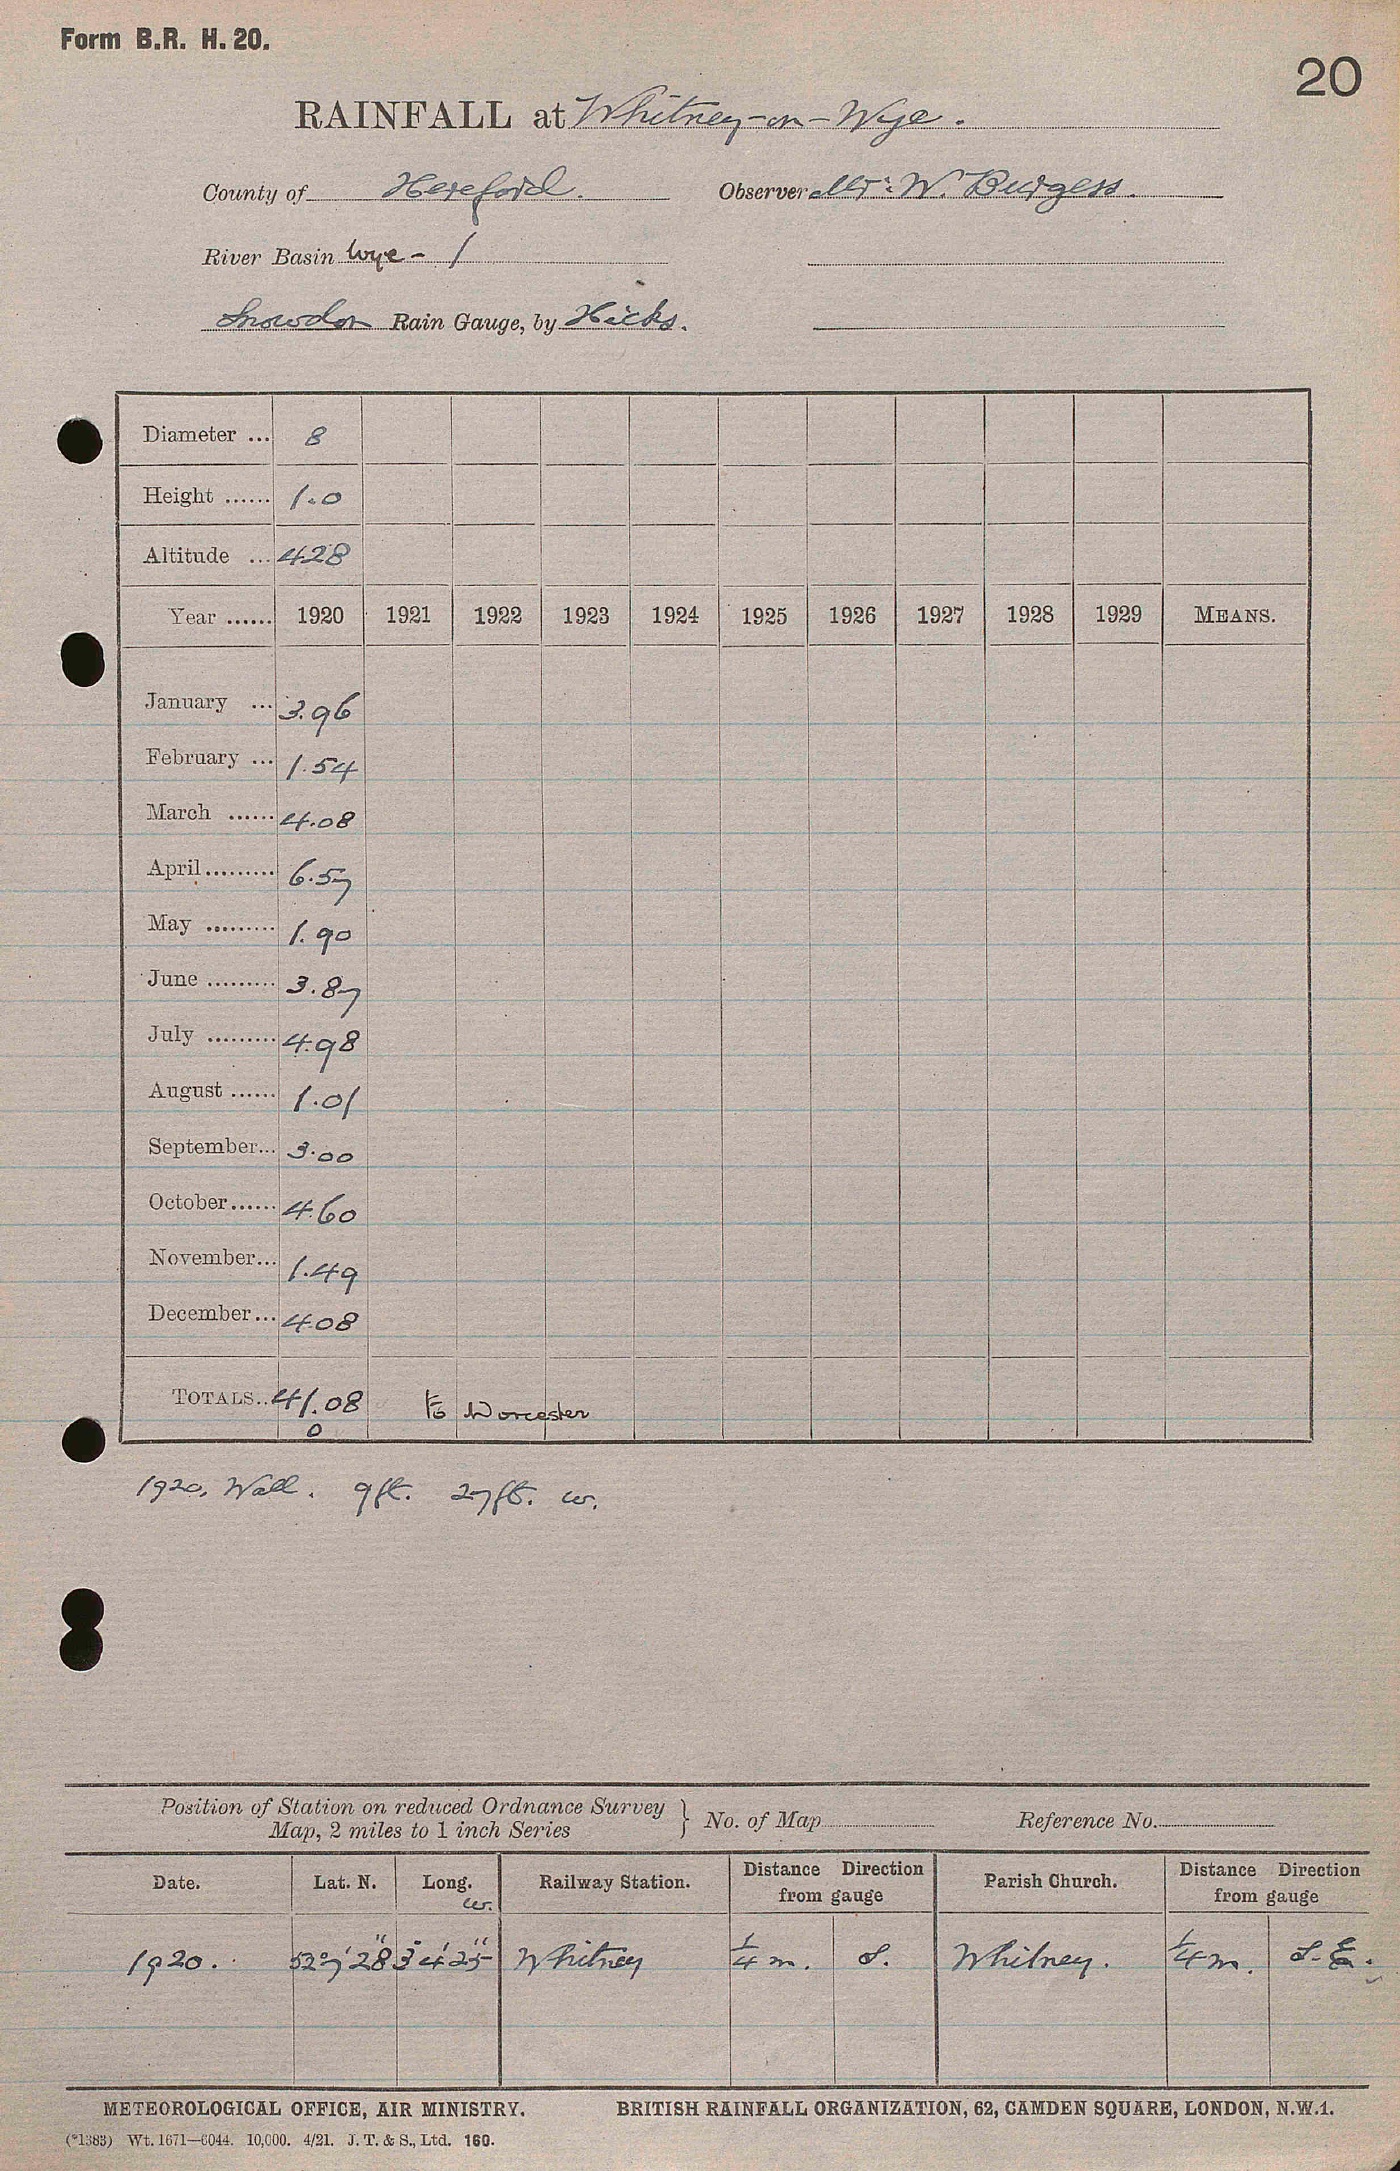 Form B.R. H. 20.
20
RAINFALL at Whitney-on-Wye.
County of Hereford. Observer Mr. W. Burgess.
River Basin Wye - 1
Snowdon Rain Gauge, by Hicks.
Diameter ... 8
Height ...... 1.0
Altitude ... 428
Year ...... 1920 1921 1922 1923 1924 1925 1926 1927 1928 1929 MEANS.
January ... 3.96
February ... 1.54
March ...... 4.08
April......... 6.57
May ......... 1.90
June ......... 3.87
July ......... 4.98
August ...... 1.01
September... 3.00
October...... 4.60
November... 1.49
December... 4.08
TOTALS.. 41.08 to Worcester
0
1920. Wall. 9ft. 27ft. W.
Position of Station on reduced Ordnance Survey Map, 2 miles to 1 inch Series } No. of Map Reference No.
Date. Lat. N. Long. W. Railway Station. Distance Direction from gauge Parish Church. Distance Direction from gauge
1920. 52° 7' 28" 3° 4' 25" Whitney 1/4 m. S. Whitney. 1/4 m. S.E.
METEOROLOGICAL OFFICE, AIR MINISTRY. BRITISH RAINFALL ORGANIZATION, 62, CAMDEN SQUARE, LONDON, N.W.1.
(*1383) Wt. 1671—6044. 10,000. 4/21. J. T. & S., Ltd. 160.